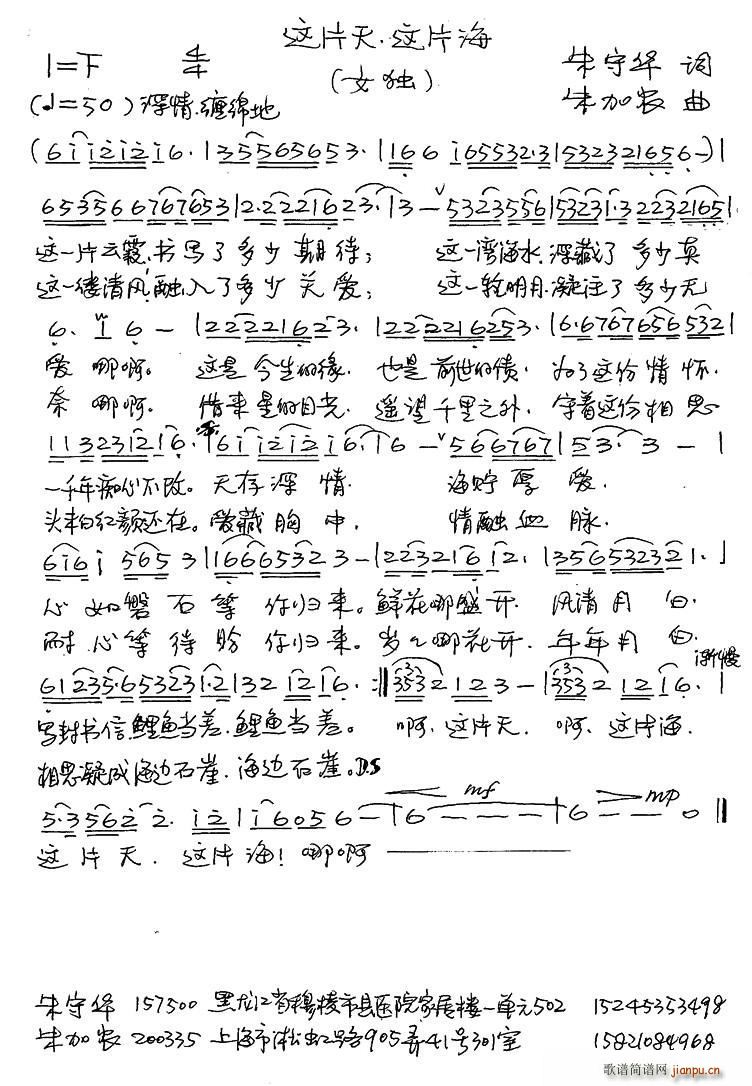 这片天.这片海
1=F 4/4
(女独)
朱守华 词
(♩=50)深情.缠绵地
朱加农 曲
(6 i i 2 i 2 i 6·|3 5 5 6 5 6 5 3·|1 6 6 i 6 5 5 3 2·3|5 3 2 3 2 1 6 5 6 -)|
6 5 3 5 6 6 7 6 7 6 5 3|2·2 2 2 1 6 2 3·|3 - ∨ 5 3 2 3 5 5 6|5 3 2 3 1·3 2 2 3 2 1 6 5|
这一片云霞,书写了多少期待; 这一湾海水,深藏了多少真
这一缕清风,融入了多少关爱; 这一轮明月,凝注了多少无
6· 1 6 -|2 2 2 2 2 1 6 2 3·|2 2 2 2 1 6 2 5 3·|6·6 7 6 7 6 5 6 5 3 2|
爱 哪啊。 这是今生的缘. 也是前世的债, 为了这份情怀.
奈 哪啊。 借来星的目光. 遥望千里之外. 守着这份相思
1 1 3 2 3 1 2 1 6·|6 i i 2 i 2 i 6·i|6 - ∨ 5 6 6 7 6 7|5 3· 3 -|
一千年痴心不改。天存深情 海贮厚爱.
头未白红颜还在。爱藏胸中, 情融血脉.
6 i 6 i 5 6 5 3|1 6 6 6 5 3 2 3 -|2 2 3 2 1 6 1 2·|3 5 6 5 3 2 3 2 1·|
心如磐石等你归来。鲜花哪盛开. 风清月白.
耐心等待盼你归来。岁岁哪花开. 年年月白.
渐慢
6 1 2 3 5·6 5 3 2 3 1·2|3 2 1 2 1 6·:‖3 5 3 2 1 2 3 -|3 5 3 2 1 2 1 6·|
写封书信鲤鱼当差.鲤鱼当差。 啊.这片天. 啊.这片海.
相思凝成海边石崖.海边石崖。D.S
mf mp
5·3 5 6 2 2· i 2|i 6 0 5 6 -|6 - - -|6 - - 0‖
这片天. 这片海!哪啊
朱守华 157500 黑龙江省穆棱市县医院家属楼一单元502 15245353498
朱加农 200335 上海市淞虹路905弄41号301室 15821084968
歌谱简谱网
jianpu.cn